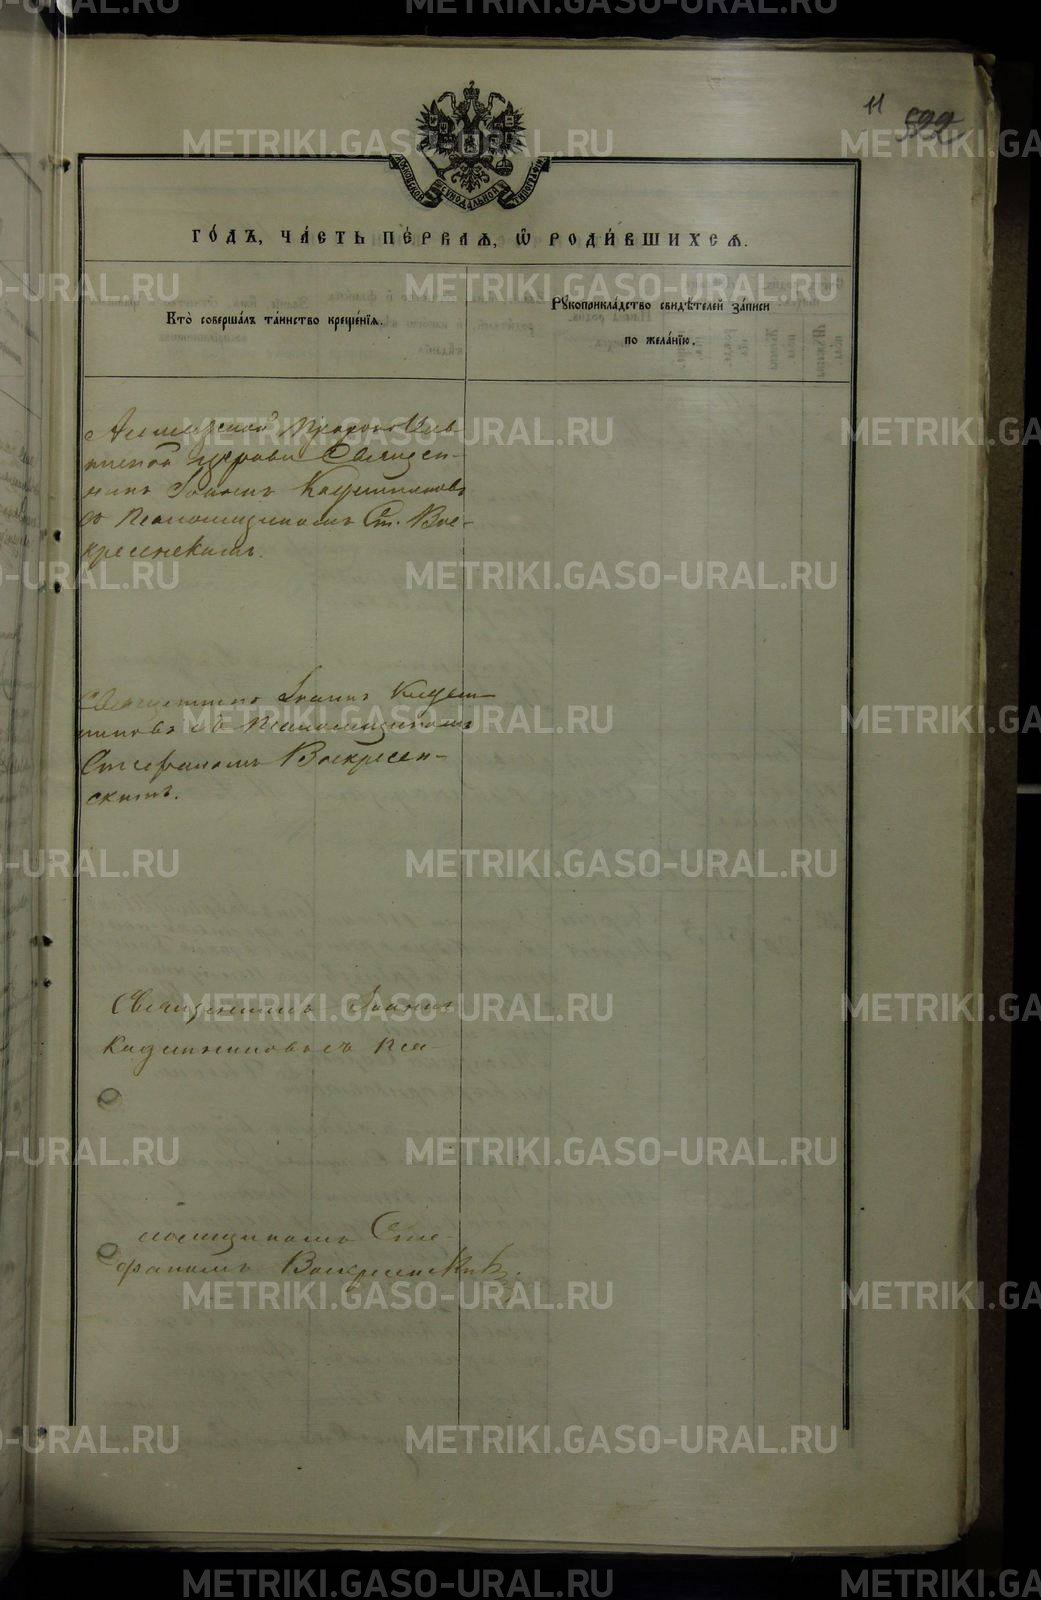 11
522
МОСКОВСКОЙ СѴНОДАЛЬНОЙ ТИПОГРАФІИ
ГО́ДЪ, ЧА́СТЬ ПЕ́РВАѦ, Ѽ РОДИ́ВШИХСѦ.
Кто̀ соверша́лъ та́инство креще́нїѧ.
Рꙋкоприкла́дство свидѣ́телей за́писи
по жела́нїю.
Пророко Иль-
инской церкви Священ-
никъ Іоаннъ Кадешниковъ
съ Псаломщикомъ Ст. Вос-
кресенскимъ.
Священникъ Іоаннъ Кадеш-
никовъ съ Псаломщикомъ
Стефаномъ Воскресен-
скимъ.
Священникъ Іоаннъ
Кадешниковъ съ Пса-
ломщикомъ Сте-
фаномъ Воскресенскимъ
METRIKI.GASO-URAL.RU